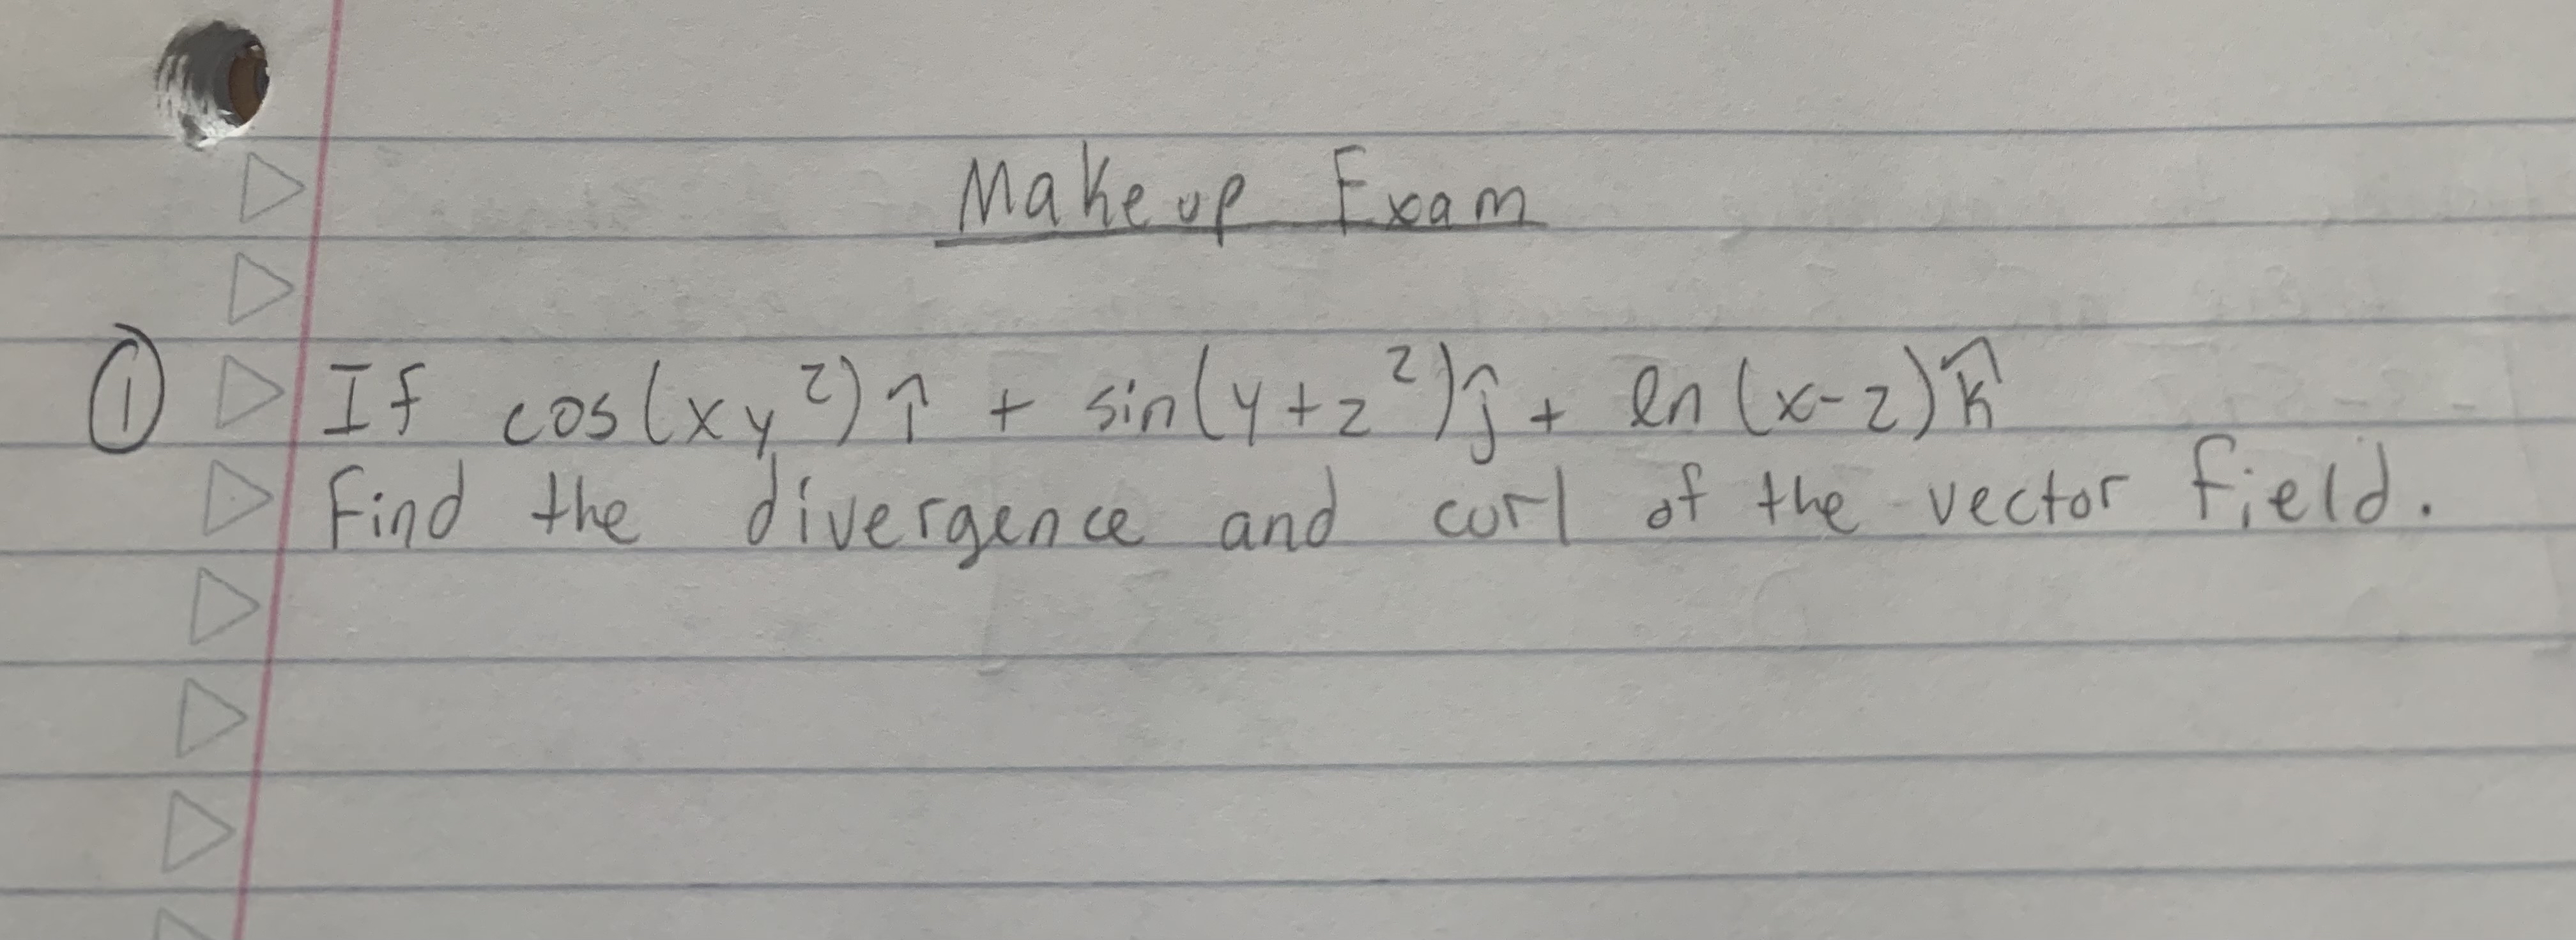 Makeup Exam
① If cos(xy²)î + sin(y+z²)ĵ + ln(x-z)k̂
Find the divergence and curl of the vector field.